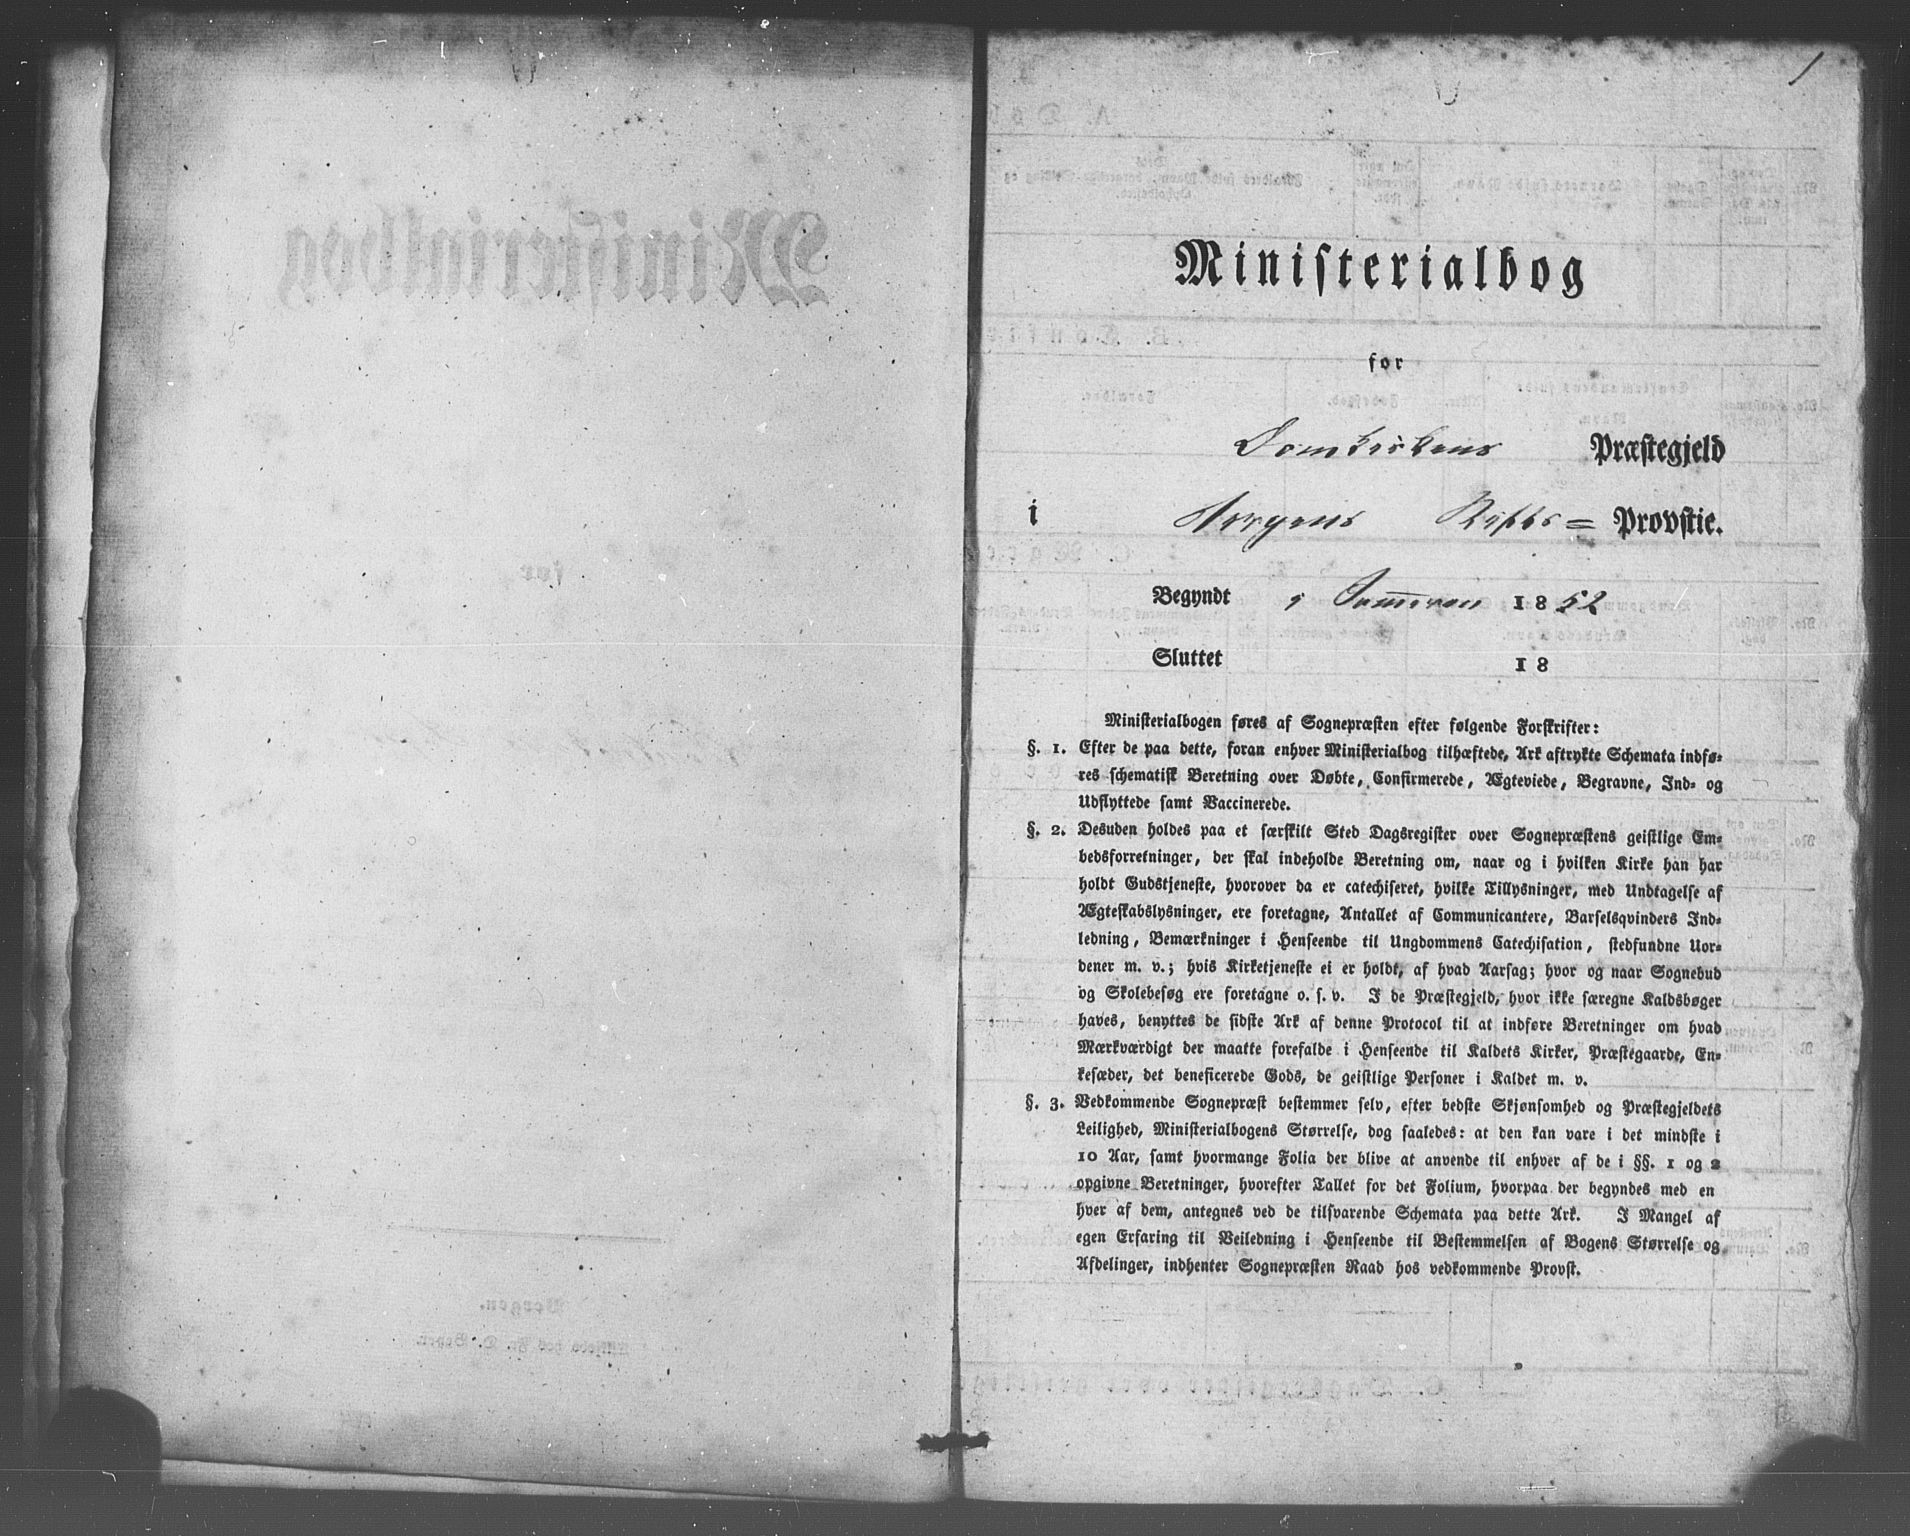 1
Ministerialbog
for
Domkirkens Præstegjeld
i Bergens Stifts= Provstie.
Begyndt i Sommeren 1852
Sluttet 18
Ministerialbogen føres af Sognepræsten efter følgende Forskrifter:
§. 1. Efter de paa dette, foran enhver Ministerialbog tilhæftede, Ark aftrykte Schemata indfø-
res schematisk Beretning over Døbte, Confirmerede, Ægteviede, Begravne, Ind- og
Udflyttede samt Vaccinerede.
§. 2. Desuden holdes paa et særskilt Sted Dagsregister over Sognepræstens geistlige Em-
bedsforretninger, der skal indeholde Beretning om, naar og i hvilken Kirke han har
holdt Gudstjeneste, hvorover da er catechiseret, hvilke Tillysninger, med Undtagelse af
Ægteskabslysninger, ere foretagne, Antallet af Communicantere, Barselqvinders Ind-
ledning, Bemærkninger i Henseende til Ungdommens Catechisation, stedfundne Uor-
dener m. v.; hvis Kirketjeneste ei er holdt, af hvad Aarsag; hvor og naar Sognebud
og Skolebesøg ere foretagne o. s. v. I de Præstegjeld, hvor ikke særegne Kaldsbøger
haves, benyttes de sidste Ark af denne Protocol til at indføre Beretninger om hvad
Mærkværdigt der maatte forefalde i Henseende til Kaldets Kirker, Præstegaarde, En-
kesæder, det beneficerede Gods, de geistlige Personer i Kaldet m. v.
§. 3. Vedkommende Sognepræst bestemmer selv, efter bedste Skjønsomhed og Præstegjeldets
Leilighed, Ministerialbogens Størrelse, dog saaledes: at den kan vare i det mindste i
10 Aar, samt hvormange Folia der blive at anvende til enhver af de i §§. 1 og 2
opgivne Beretninger, hvorefter Tallet for det Folium, hvorpaa der begyndes med en
hver af dem, antegnes ved de tilsvarende Schemata paa dette Ark. I Mangel af
egen Erfaring til Veiledning i Henseende til Bestemmelsen af Bogens Størrelse og
Afdelinger, indhenter Sognepræsten Raad hos vedkommende Provst.